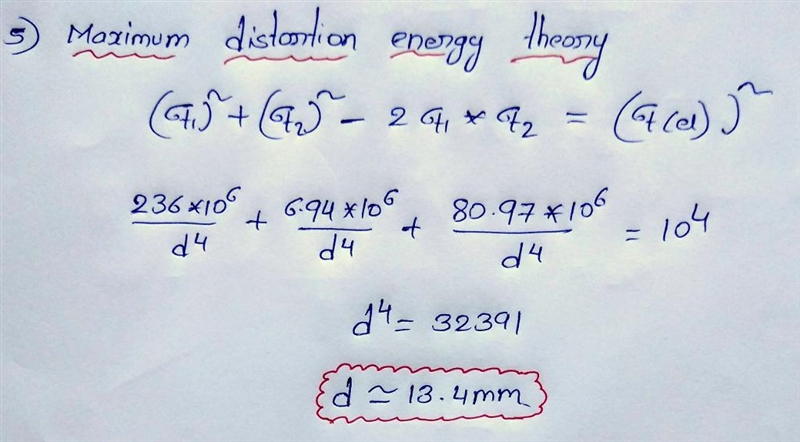 5) Maximum distortion energy theory
(σ₁)² + (σ₂)² - 2 σ₁ * σ₂ = (σ(el))²
236*10⁶/d⁴ + 6.94*10⁶/d⁴ + 80.97*10⁶/d⁴ = 10⁴
d⁴ = 32391
d ≃ 13.4mm